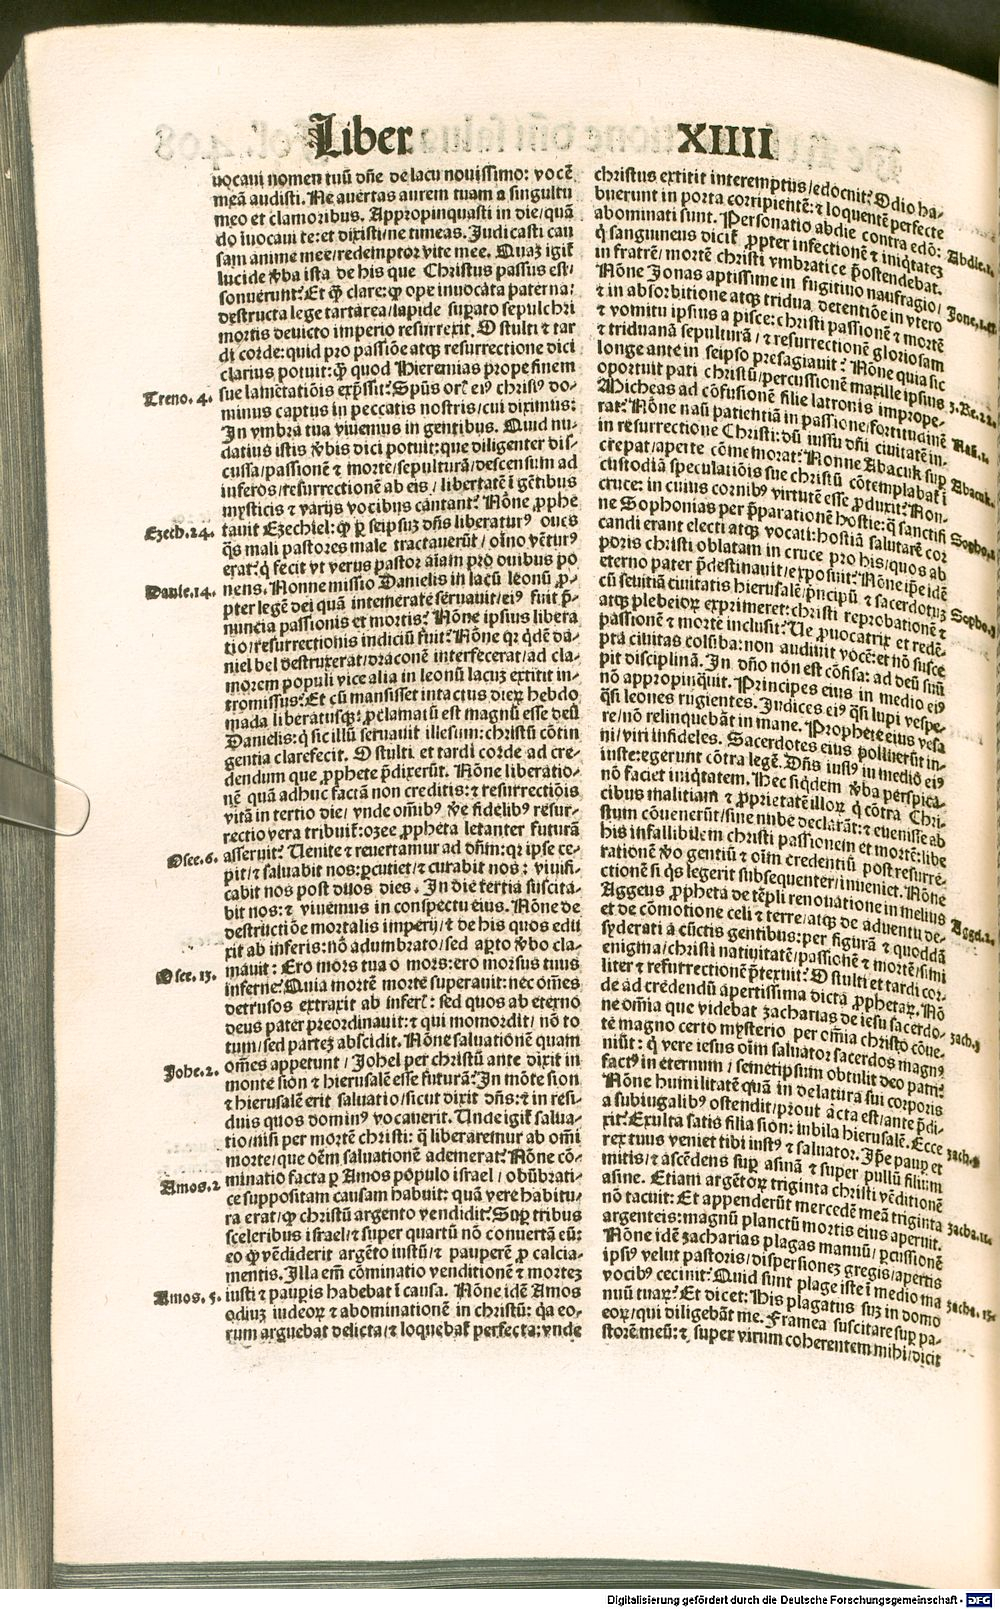 Liber XIIII
uocaui nomen tuū dñe de lacu nouissimo: vocē
meā audisti. Ne auertas aurem tuam a singultu
meo et clamoribus. Appropinquasti in die/quā
do īuocaui te: et dixisti/ne timeas. Judicasti cau
sam anime mee/redemptor vite mee. Quaꝫ igiť
lucide v̄ba ista de his que Christus passus est/
sonuerunt? Et q̄ȝ clare: ꝙ ope inuocata paterna:
destructa lege tartarea/lapide suꝑato sepulchri
mortis deuicto imperio resurrexit. O stulti ⁊ tar
di corde: quid pro passiōe atqꝫ resurrectione dici
clarius potuit: ꝙ̄ quod Hieremias prope finem
Treno. 4. sue lamētatiōis exp̄ssit? Spūs orͣ eiꝰ chrisꝰ do-
minus captus in peccatis nostris/cui diximus:
In vmbra tua viuemus in gentibus. Quid nu-
datius istis v̄bis dici potuit: que diligenter dis-
cussa/passionē ⁊ mortē/sepulturā/descensum ad
inferos/resurrectionē ab eis/ libertatē ī gētibus
mysticis ⁊ varijs vocibus cantant? Nōne ꝓphe
Ezech. 24. tauit Ezechiel: ꝙ ꝑ seipsuꝫ dn̄s liberaturꝰ oues
q̄s mali pastores male tractauerūt/ oīno vētur꜒
erat: q̄ fecit vt verus pastor aīam pro ouibus po
Danie. 14. nens. Nonne missio Danielis in lacū leonū ꝓ-
pter legē dei quā intemerate seruauit/eiꝰ fuit p̄-
nuncia passionis et mortis? Nōne ipsius libera
tio/resurrectionis indiciū fuit? Nōne qꝛ q̇dē da-
niel bel destruxerat/draconē interfecerat/ad cla-
morem populi vice alia in leonū lacuꝫ extitit in-
tromissus? Et cū mansisset intactus dieꝝ hebdo
mada liberatusqꝫ: ꝓclamatū est magnū esse deū
Danielis: q̄ sic illū seruauit illesum: christū cōtin
gentia clarefecit. O stulti et tardi corde ad cre-
dendum que ꝓphete p̄dixerūt. Nōne liberatio-
nē quā adhuc factā non creditis: ⁊ resurrectiōis
vitā in tertio die/ vnde om̄ibꝰ v̄e fidelibꝰ resur-
rectio vera tribuiť: ozee ꝓpheta letanter futurā
Osee. 6. asseruit? Uenite ⁊ reuertamur ad dn̄m: qꝛ ipse ce-
pit/⁊ saluabit nos: ꝑcutiet/⁊ curabit nos: viuifi-
cabit nos post duos dies. In die tertia suscita-
bit nos: ⁊ viuemus in conspectu eius. Nōne de
destructiōe mortalis imperij/⁊ de his quos edu
xit ab inferis: nō adumbrato/sed aꝑto v̄bo cla-
Osee. 13. mauit: Ero mors tua o mors: ero morsus tuus
inferne? Quia mortē morte superauit: nec om̄es
detrusos extraxit ab inferī: sed quos ab eterno
deus pater preordinauit: ⁊ qui momordit/ nō to
tum/sed parteꝫ abscidit. Nōne saluationē quam
Johe. 2. om̄es appetunt/ Johel per christū ante dixit in
monte sion ⁊ hierusalē esse futurā? In mōte sion
⁊ hierusalē erit saluatio/sicut dixit dn̄s: ⁊ in resi-
duis quos dominꝰ vocauerit. Unde igiť salua-
tio/nisi per mortē christi: q̄ liberaremur ab om̄i
morte/que oēm saluationē ademerat? Nōne cō-
Amos. 2 minatio facta ꝑ Amos populo israel/ obūbrati-
ce suppositam causam habuit: quā vere habitu-
ra erat/ꝙ christū argento vendidit? Suꝑ tribus
sceleribus israel/⁊ super quartū nō conuertā eū:
eo ꝙ vēdiderit argēto iustū/⁊ pauperē ꝓ calcia-
mentis. Illa em̄ cōminatio venditionē ⁊ morteꝫ
Amos. 5. iusti ⁊ pauꝑis habebat ī causa. Nōne idē Amos
odiuꝫ iudeoꝝ ⁊ abominationē in christū: q̇a eo-
rum arguebat delicta/⁊ loquebať perfecta: vnde
christus extitit interemptus/edocuit? Odio ha-
buerunt in porta corripientē: ⁊ loquentē perfecte
abominati sunt. Personatio abdie contra edō: Abdie. 1.
q̄ sanguineus diciť ꝓpter infectionē ⁊ iniq̇tateꝫ
in fratrē/ mortē christi vmbratice p̄ostendebat.
Nōne Jonas aptissime in fugitiuo naufragio/ Jone. 1.
⁊ in absorbitione atqꝫ tridua detentiōe in vtero
⁊ vomitu ipsius a pisce: christi passionē ⁊ mortē
⁊ triduanā sepulturā/ ⁊ resurrectionē gloriosam
longe ante in seipso presagiauit? Nōne quia sic
oportuit pati christū/percussionē maxille ipsius 3. Re. 22.
Micheas ad cōfusionē filie latronis imprope-
rat? Nōne naū patientiā in passione/fortitudinē Naū. 1.
in resurrectione Christi: dū iussu dn̄i ciuitatē in-
crepat/aperte cōmemorat? Nonne Abacuk suꝑ Abacuk.
custodiā speculatiōis sue christū cōtemplabať ī
cruce: in cuius cornibꝰ virtutē esse ꝓduxit? Non-
ne Sophonias per p̄parationē hostie: q̄ sanctifi Sopho. 1
candi erant electi atqꝫ vocati: hostiā salutarē cor
poris christi oblatam in cruce pro his/quos ab
eterno pater p̄destinauit/exposuit? Nōne ip̄e idē
cū seuitiā ciuitatis hierusalē/p̄ncipū ⁊ sacerdotuꝫ Sopho. 3
atqꝫ plebeioꝝ exprimeret: christi reprobationē ⁊
passionē ⁊ mortē inclusit? Ue ꝓuocatrix et redē-
pta ciuitas colūba: non audiuit vocē: et nō susce
pit disciplinā. In dn̄o nōn est cōfisa: ad deū suū
nō appropinq̇uit. Principes eius in medio eiꝰ
q̄si leones rugientes. Judices eiꝰ q̄si lupi vespe-
re/nō relinquebāt in mane. Prophete eius vesa
ni/viri infideles. Sacerdotes eius polluerūt in-
iuste: egerunt cōtra legē. Dn̄s iustꝰ in medio eiꝰ
nō faciet iniq̇tatem. Hec siq̇dem v̄ba perspica-
cibus malitiam ⁊ ꝓprietatē illoꝝ q̄ cōtra Chri-
stum cōuenerūt/sine nube declarāt: ⁊ euenisse ab
his infallibilem christi passionem et mortē: libe
rationē v̄o gentiū ⁊ oīm credentiū post resurre-
ctionē si q̇s legerit subsequenter/inueniet. Nōne
Aggeus ꝓpheta de tēpli renouatione in melius
et de cōmotione celi ⁊ terre/atqꝫ de aduentu de- Aggei. 2.
syderati a cūctis gentibus: per figurā ⁊ quoddā
enigma/christi natiuitatē/passionē ⁊ mortē/simi
liter ⁊ resurrectionē p̄texuit? O stulti et tardi cor-
de ad credendū apertissima dicta ꝓphetaꝝ. Nō
ne om̄ia que videbat zacharias de iesu sacerdo- zach. 3
te magno certo mysterio per om̄ia christo cōue-
niūt: q̄ vere iesus oīm saluator sacerdos magnꝰ
factꝰ in eternum/ semetipsum obtulit deo patri?
Nōne humilitatē quā in delatura sui corporis
a subiugalibꝰ ostendit/prout acta est/ante p̄di-
xit? Exulta satis filia sion: iubila hierusalē. Ecce
rex tuus veniet tibi iustꝰ ⁊ saluator. Ip̄e pauꝑ et zach. 9
mitis/⁊ ascēdens suꝑ asinā ⁊ super pullū filium
asine. Etiam argētoꝝ triginta christi vēditionē
nō tacuit: Et appenderūt mercedē meā triginta
argenteis: magnū planctū mortis eius aperuit. zacha. 11.
Nōne idē zacharias plagas manuū/ꝑcussionē
ipsiꝰ velut pastoris/dispersioneꝫ gregis/apertis
vocibꝰ cecinit? Quid sunt plage iste ī medio ma
nuū tuaꝝ? Et dicet: His plagatus suꝫ in domo zacha. 13.
eoꝝ/qui diligebāt me. Framea suscitare suꝑ pa-
storē meū: ⁊ super virum coherentem mihi/dicit
Digitalisierung gefördert durch die Deutsche Forschungsgemeinschaft - DFG